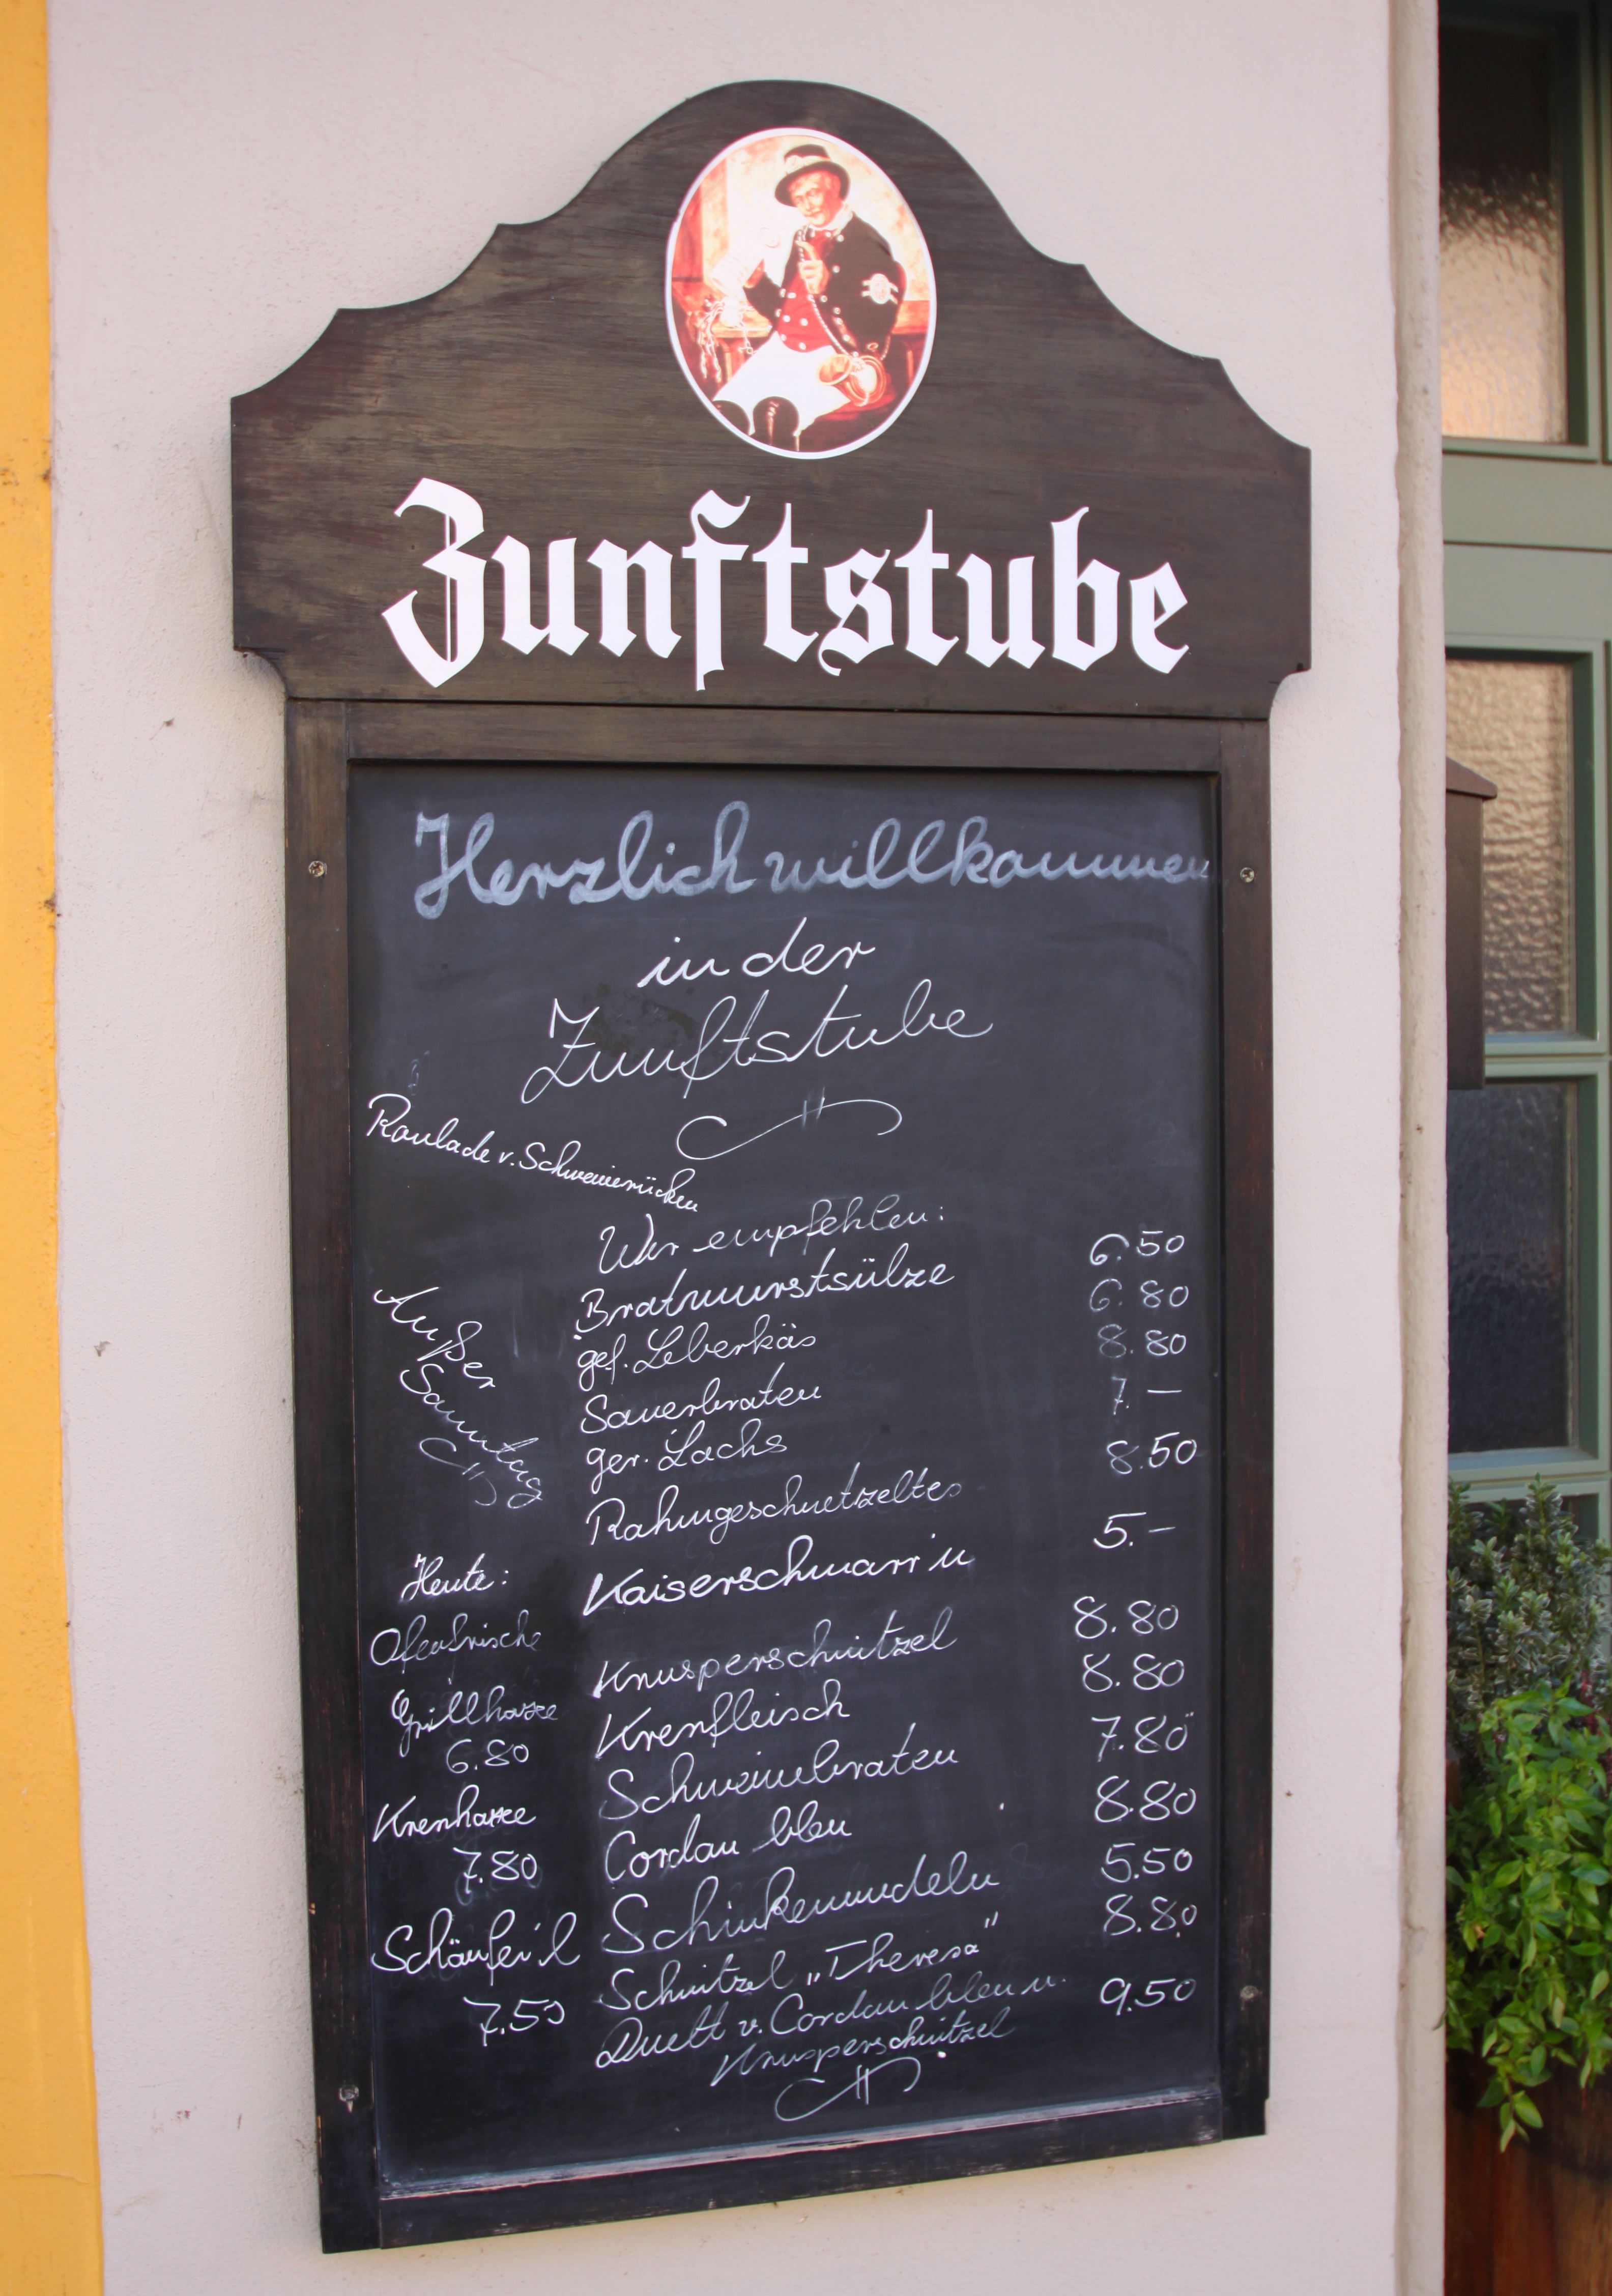 Zunftstube
Herzlich willkommen
in der
Zunftstube
Roulade v. Schweinerücken
Wir empfehlen:
Bratwurstsülze 6.50
gef. Leberkäs 6.80
Sauerbraten 8.80
ger. Lachs 7.–
Rahmgeschnetzeltes 8.50
Kaiserschmarr'n 5.–
Knusperschnitzel 8.80
Krenfleisch 8.80
Schweinebraten 7.80
Cordau bleu 8.80
Schinkennudeln 5.50
Schnitzel „Theresa" 8.80
Duett v. Cordau bleu u. 9.50
Knusperschnitzel
Außer
Samstag
Heute:
Ofenfrische
Grillhaxe
6.80
Krenhaxe
7.80
Schäufer'l
7.50